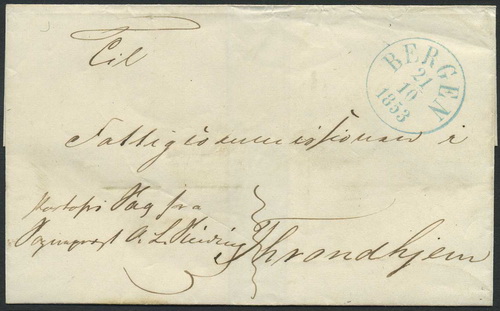 Til
BERGEN
21
10
1853
Fattigcommissionen i
Portofri Sag fra
A. L.
Throndhjem